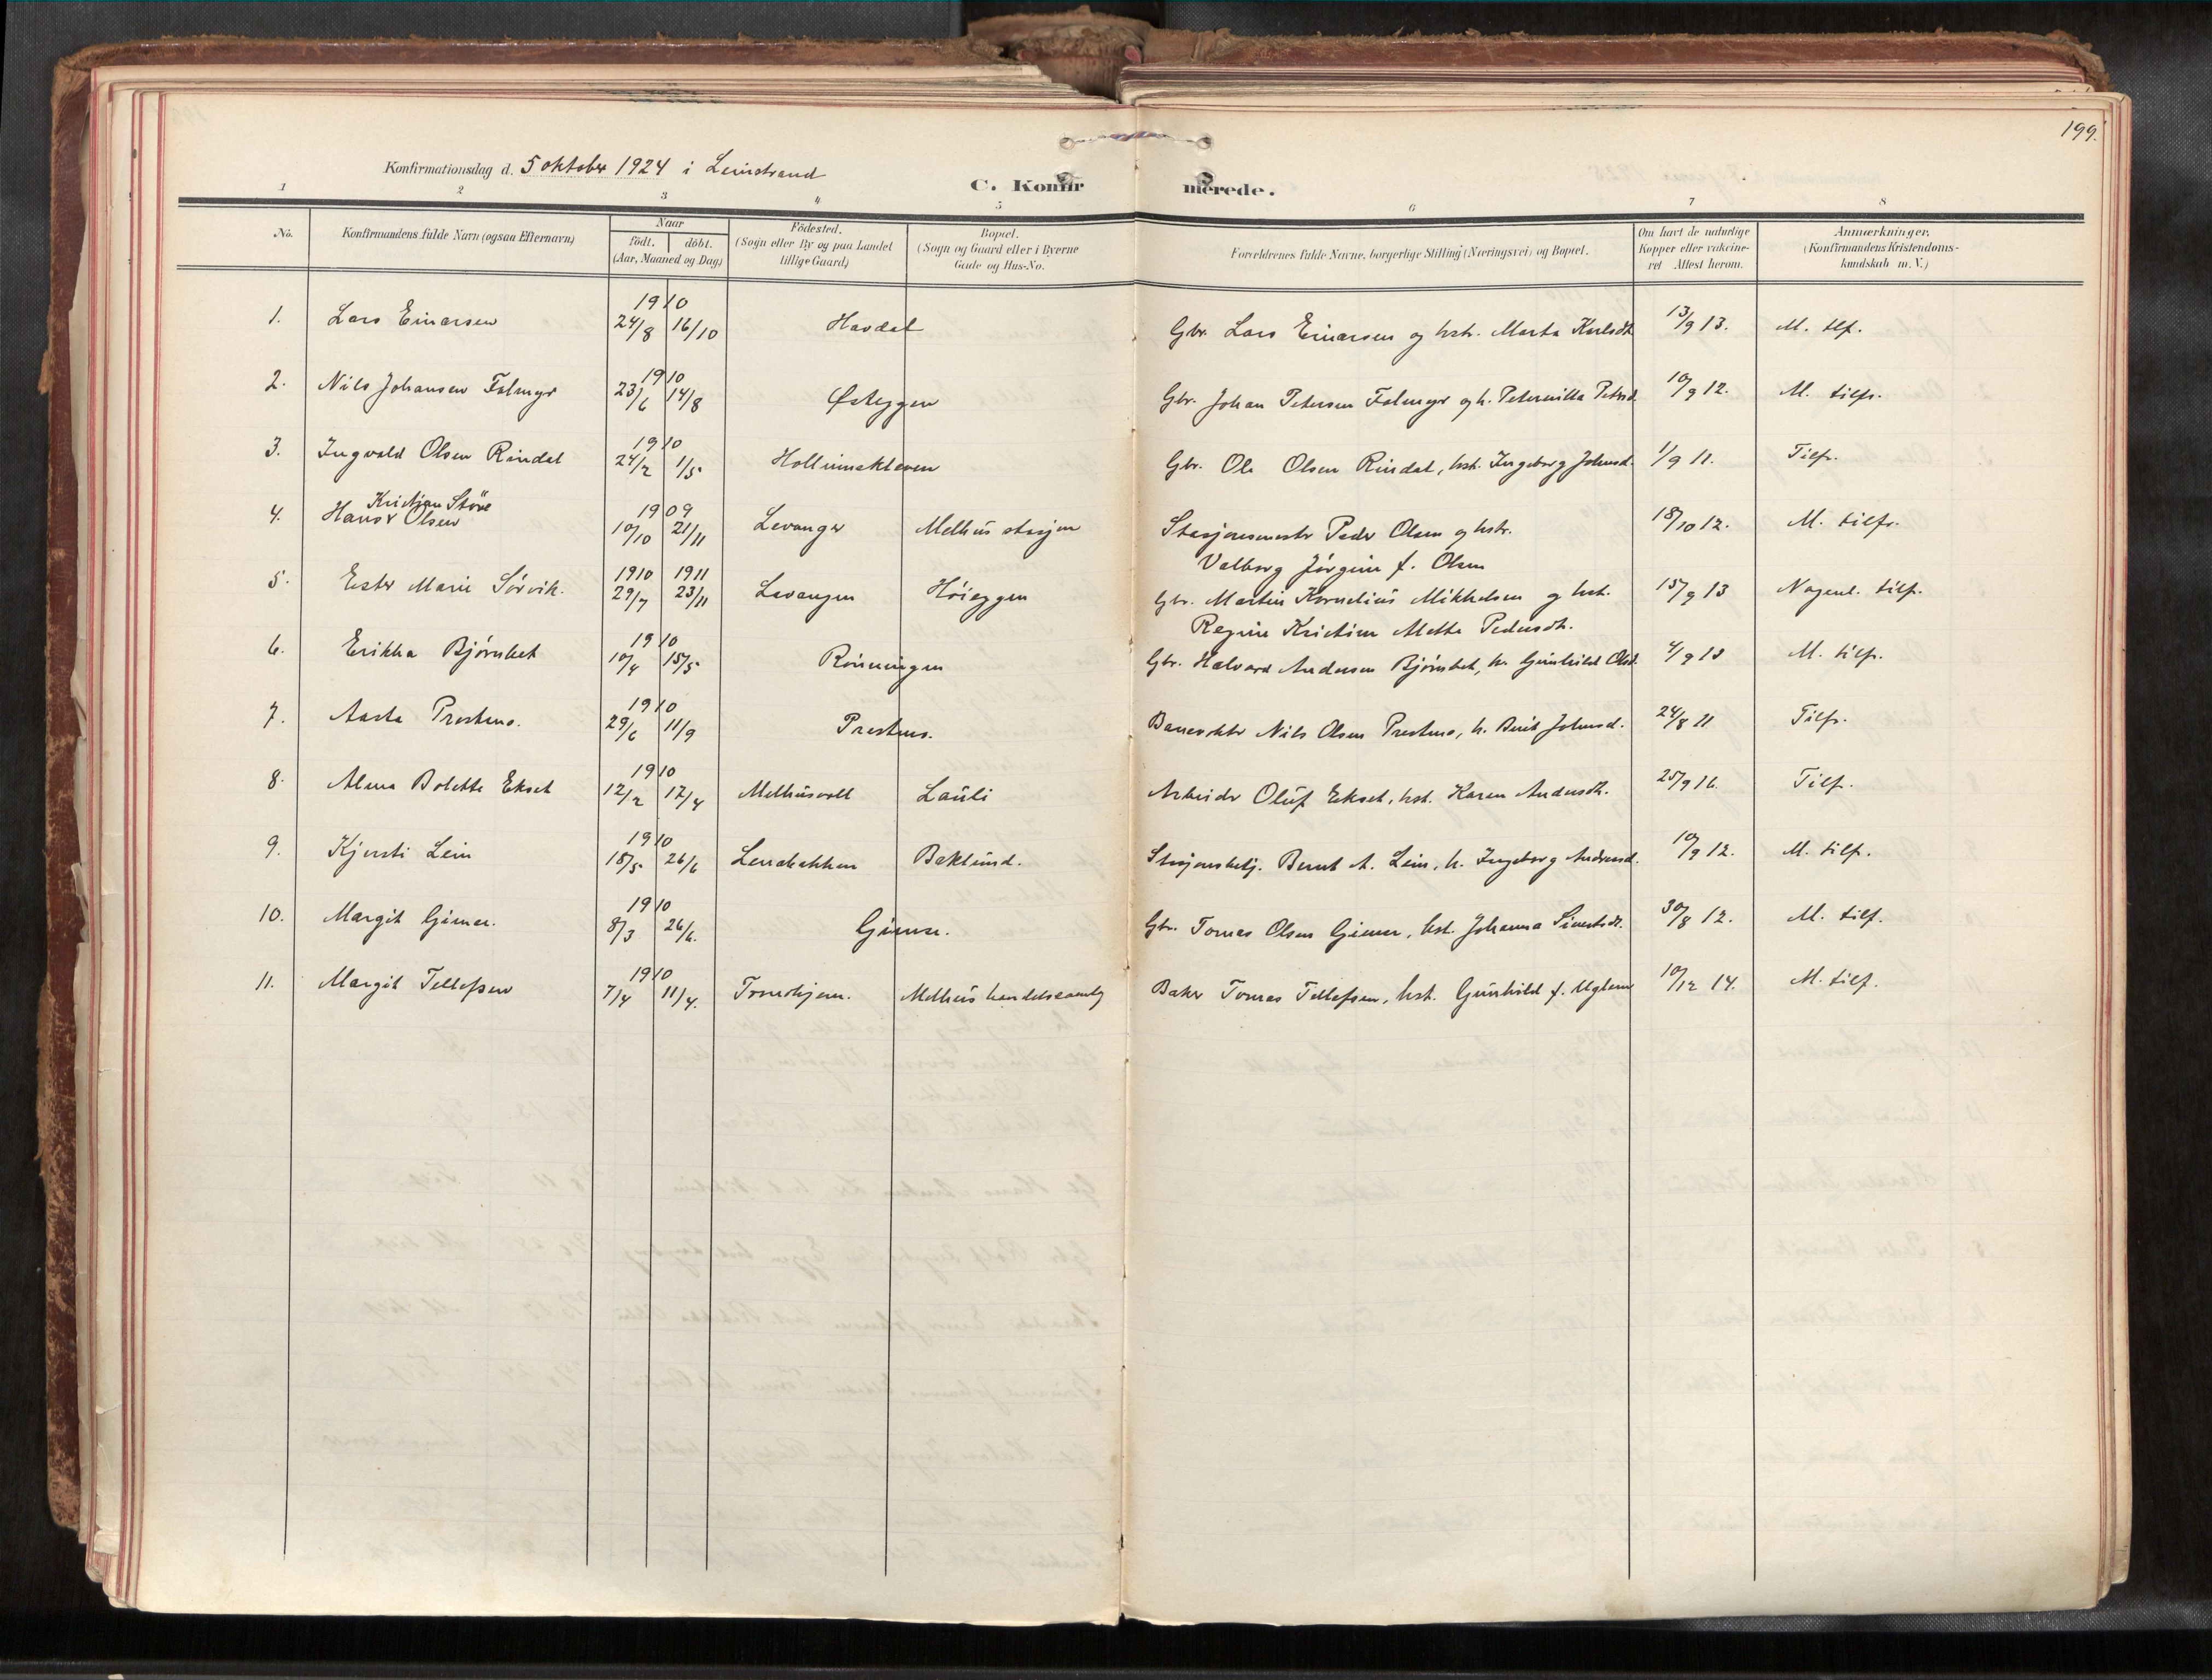 199.
Konfirmationsdag d. 5 oktober 1924 i Leinstrand
C. Konfirmerede.
1 2 3 4 5 6 7 8
No. Konfirmandens fulde Navn (ogsaa Efternavn) Naar födt. döbt. (Aar, Maaned og Dag) Födested. (Sogn eller By og paa Landet tillige Gaard) Bopæl. (Sogn og Gaard eller i Byerne Gade og Hus-No. Forældrenes fulde Navne, borgerlige Stilling (Næringsvei) og Bopæl. Om havt de naturlige Kopper eller vakcineret Attest herom. Anmærkninger. (Konfirmandens Kristendomskundskab m. V.)
1910
1. Lars Einarsen 24/8 16/10 Havdal Gbr. Lars Einarsen og hstr. Marta Karlsdt. 13/9 13. M. tlf.
1910
2. Nils Johansen Folmyr 23/6 14/8 Østeggen Gbr. Johan Petersen Folmyr og h. Petternilla Petersd. 10/9 12. M. tilfr.
1910
3. Ingvald Olsen Rindal 24/2 1/5 Hollumskleven Gbr. Ole Olsen Rindal, hst. Ingeborg Johnsd. 1/9 11. Tilfr.
Kristjan Støre 1909
4. Hans Olsen 10/10 21/11 Levanger Melhus stasjon Stasjonsmestr Peder Olsen og hstr. 18/10 12. M. tilfr.
Valborg Jørgine f. Olsen
1910 1911
5. Ester Marie Sørvik. 29/7 23/11 Lavangen Høieggen Gbr. Martin Kornelius Mikkelsen og hst. 15/9 13 Nogenl. tilf.
Regine Kristine Mette Pedersdt.
1910
6. Erikka Bjørnbet 10/4 15/5 Rønningen Gbr. Halvard Andersen Bjørnbet, h. Gunhild Olsd. 4/9 13 M. tilfr.
1910
7. Aasta Prestmo. 29/6 11/9 Prestmo. Banevoktr Nils Olsen Prestmo, h. Berit Johnsd. 24/8 11 Tilfr.
1910
8. Alma Bolette Ekset 12/2 17/4 Melhusvoll Lauli Arbeidr Oluf Ekset, hst. Karen Andersdt. 25/9 16. Tilf.
1910
9. Kjersti Lein 18/5 26/6 Lerrabakken Baklund. Stasjonsbetj. Bernt A. Lein, h. Ingeborg Andersd. 10/9 12. M. tilf.
1910
10. Margit Gimse. 8/3 26/6. Gimse. Gbr. Tomas Olsen Gimse, hst. Johanna Sivertsdt. 30/8 12. M. tilf.
1910
11. Margit Tellefsen 7/4 11/4. Trondhjem. Melhus handelssamlg Baker Tomas Tellefsen, hst. Gunhild f. Uglem 10/12 14. M. tilf.